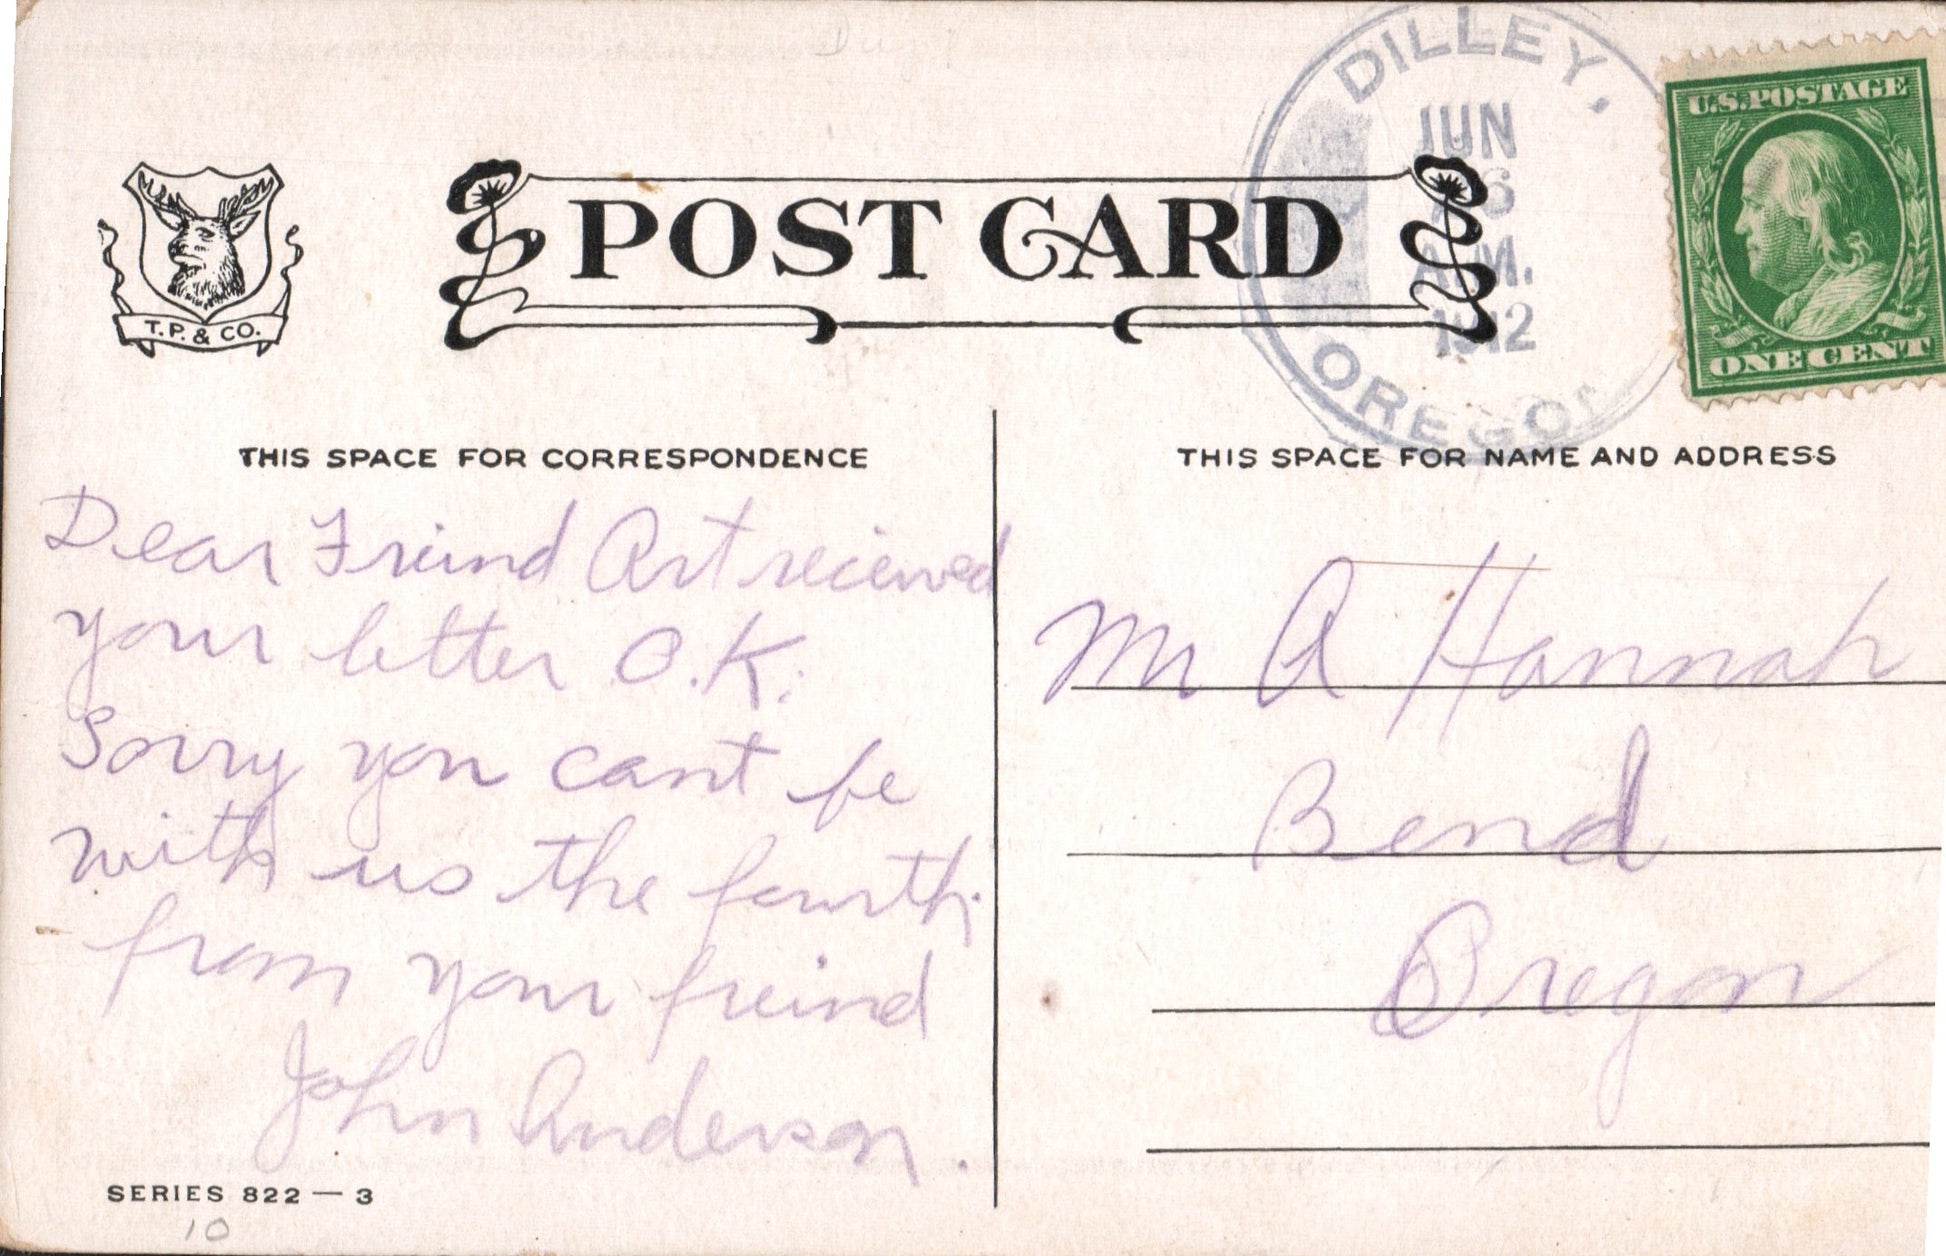 DILLEY,
JUN
6
A.M.
1912
OREGON
U.S. POSTAGE
ONE CENT
POST CARD
T. P. & CO.
THIS SPACE FOR CORRESPONDENCE
Dear Freind Art recieved
your letter O.K.
Sorry you cant be
with us the fourth.
from your freind
John Anderson.
SERIES 822 — 3
10
THIS SPACE FOR NAME AND ADDRESS
Mr A Hannah
Bend
Oregon